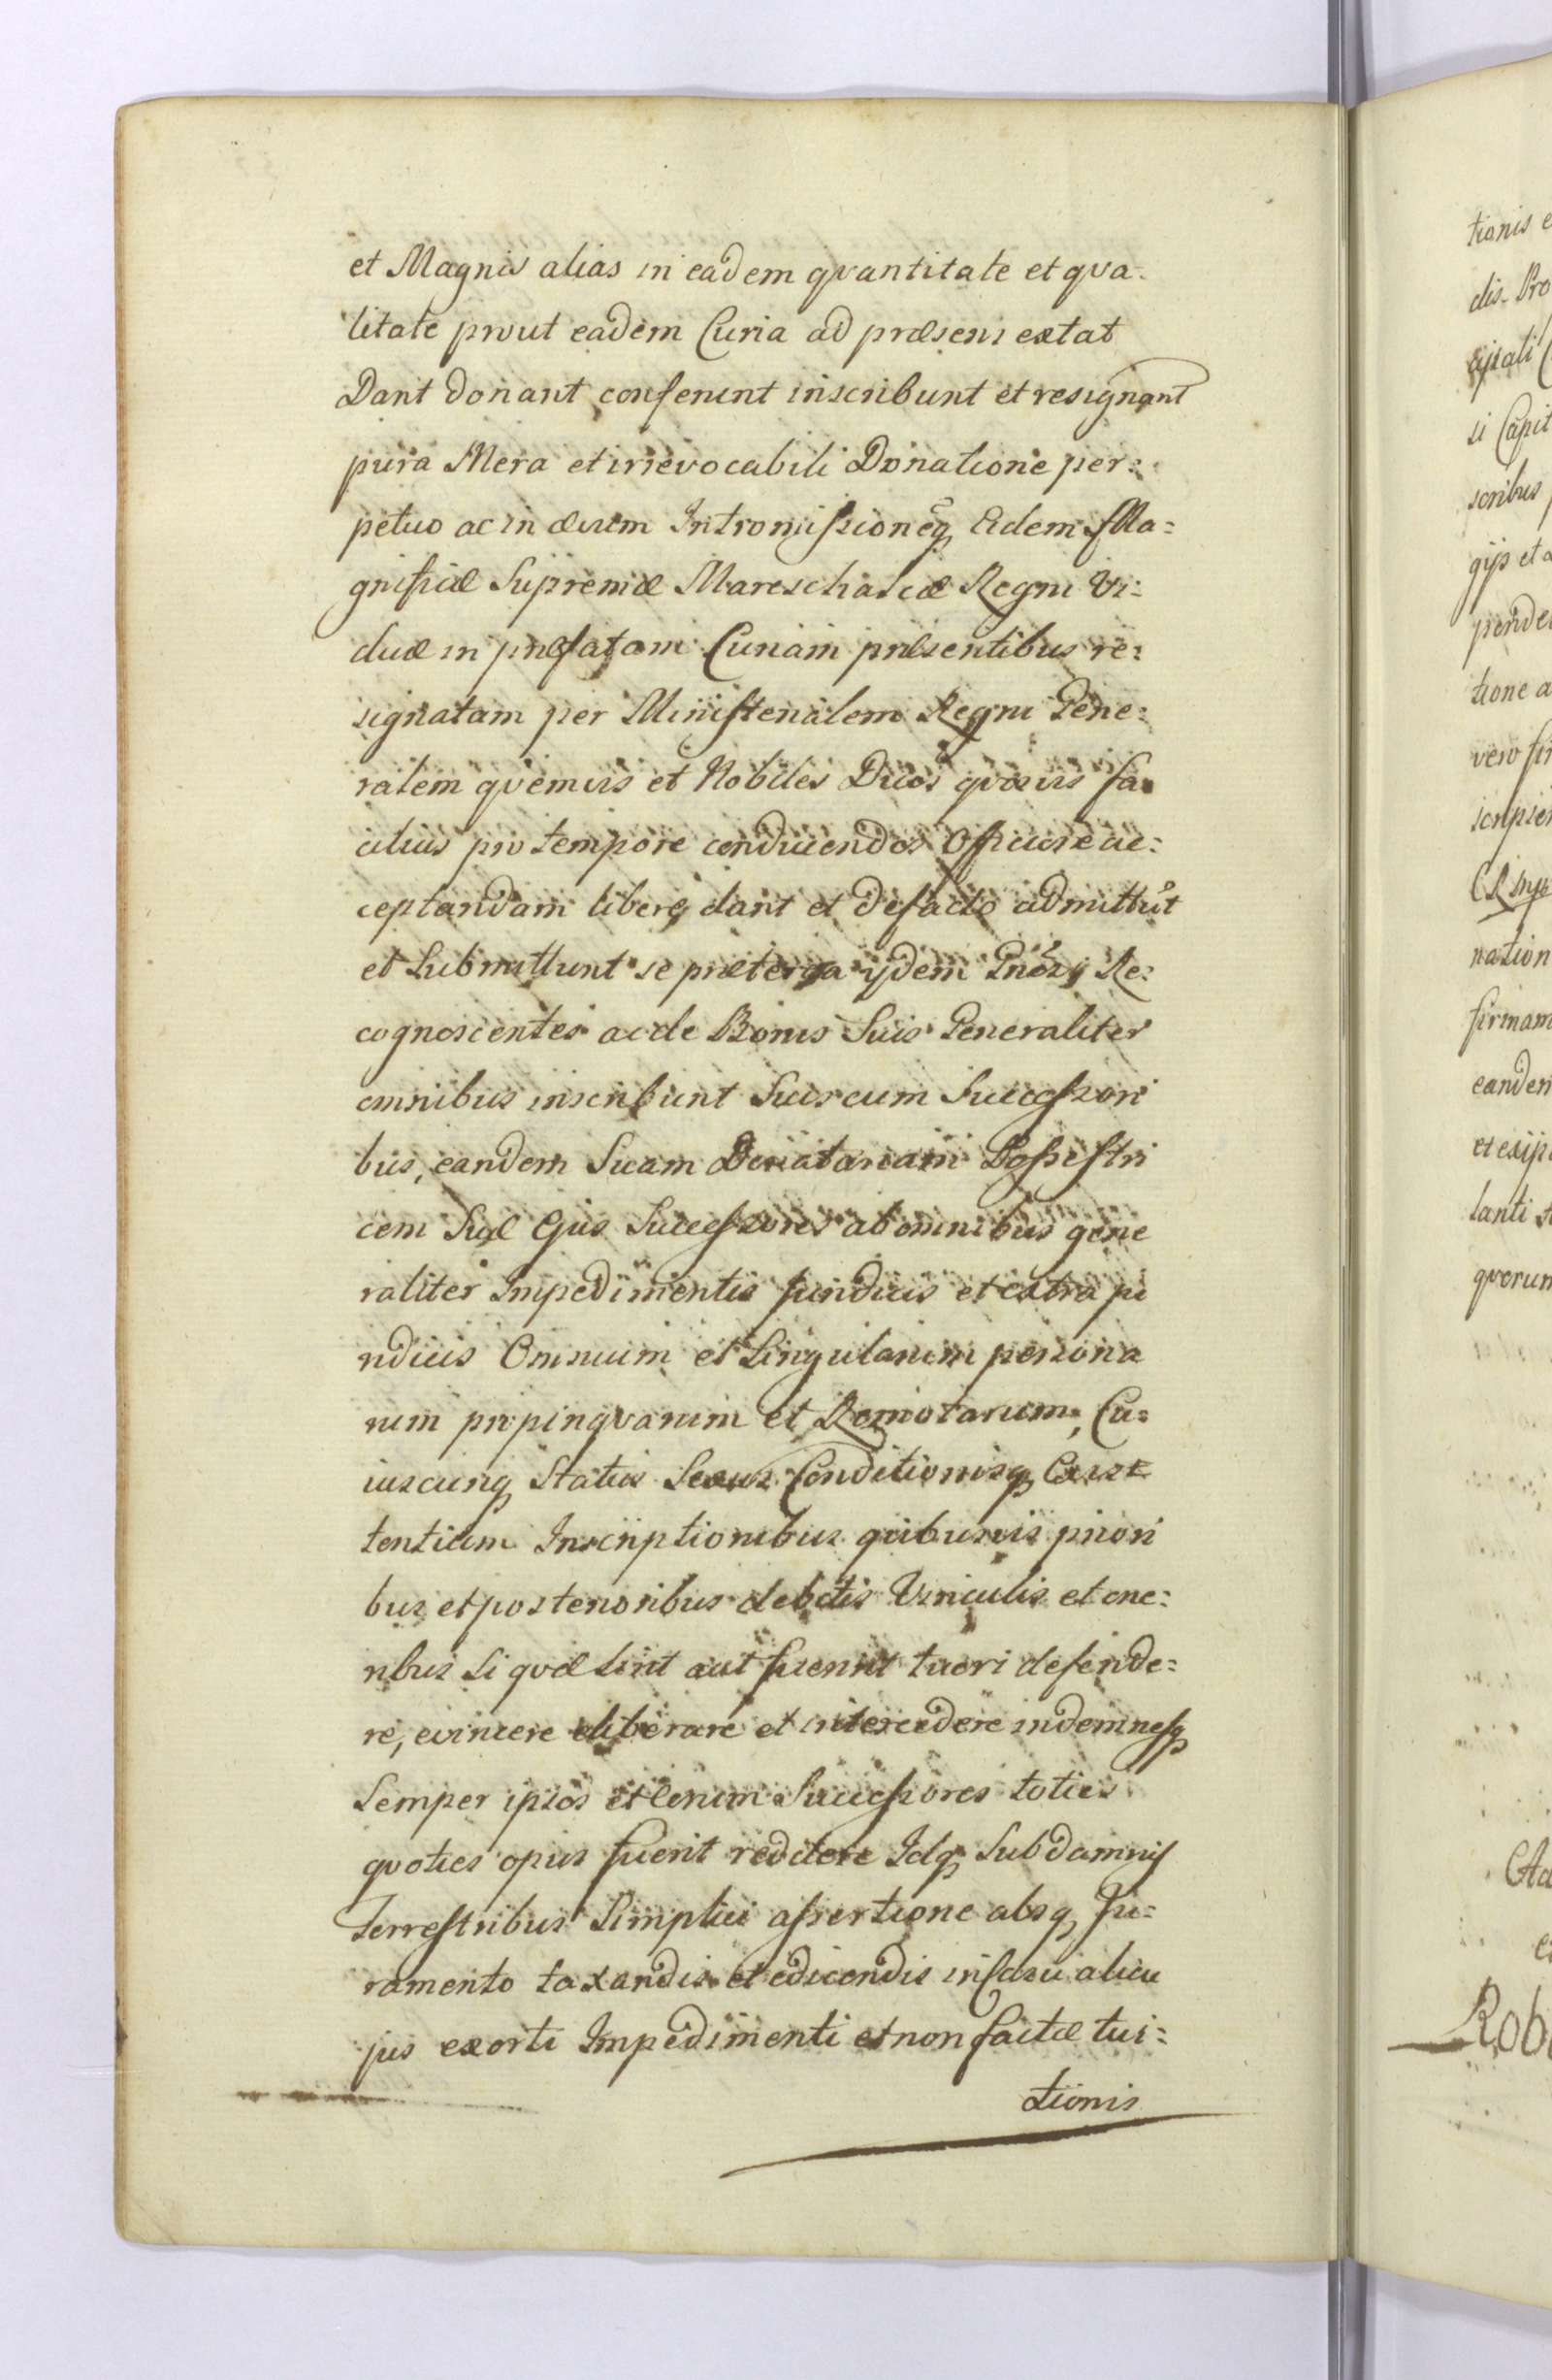 et Magnis alias in eadem qvantitate et qva-
litate prout eadem Curia ad præsens extat
Dant donant conferunt inscribunt et resignant
pura Mera et irrevocabili Donatione per=
petuo ac in ævum Intromissioneq̃ Eidem Ma=
gnificæ Supremæ Mareschalcæ Regni Vi=
duæ in præfatam Curiam præsentibus re=
signatam per Ministerialem Regni Gene=
ralem qvemvis et Nobiles Duos qvosvis fa
cilius pro tempore conducendos Officiose ac=
ceptandam libereq dant et defacto admittut
et Submittunt se præterea ijdem Re=
cognoscentes ac de Bonis Suis Generaliter
omnibus inscribunt Suis cum Successori
bus, eandem Suam Donatariam Possestri
cem Suæ Ejus Successores ab omnibus gene
raliter Impedimentis juridicis et extra ju
ridicis Omnium et Singularum persona
rum propinqvarum et Remotarum, Cu=
iuscunq Status Sexus Conditionisq Exis
tentium Inscriptionibus qvibusvis priori
bus et posterioribus debitis Vinculis et one=
ribus Si qvæ sint aut fuerint tueri defende=
re, evincere eliberare et intercedere indemnesq
Semper ipsos et Eorum Successores toties
qvoties opus fuerit reddere Idq Sub damnis
terrestribus Simplici assertione absq Ju=
ramento taxandis et edicendis in Casu alicu
jus exorti Impedimenti et non factæ tui=
tionis
tionis
dis Pro
si Capit
scribus
gijs et a
tione a
vero
nation
firmam
eandem
lanti
qvorum
Rob